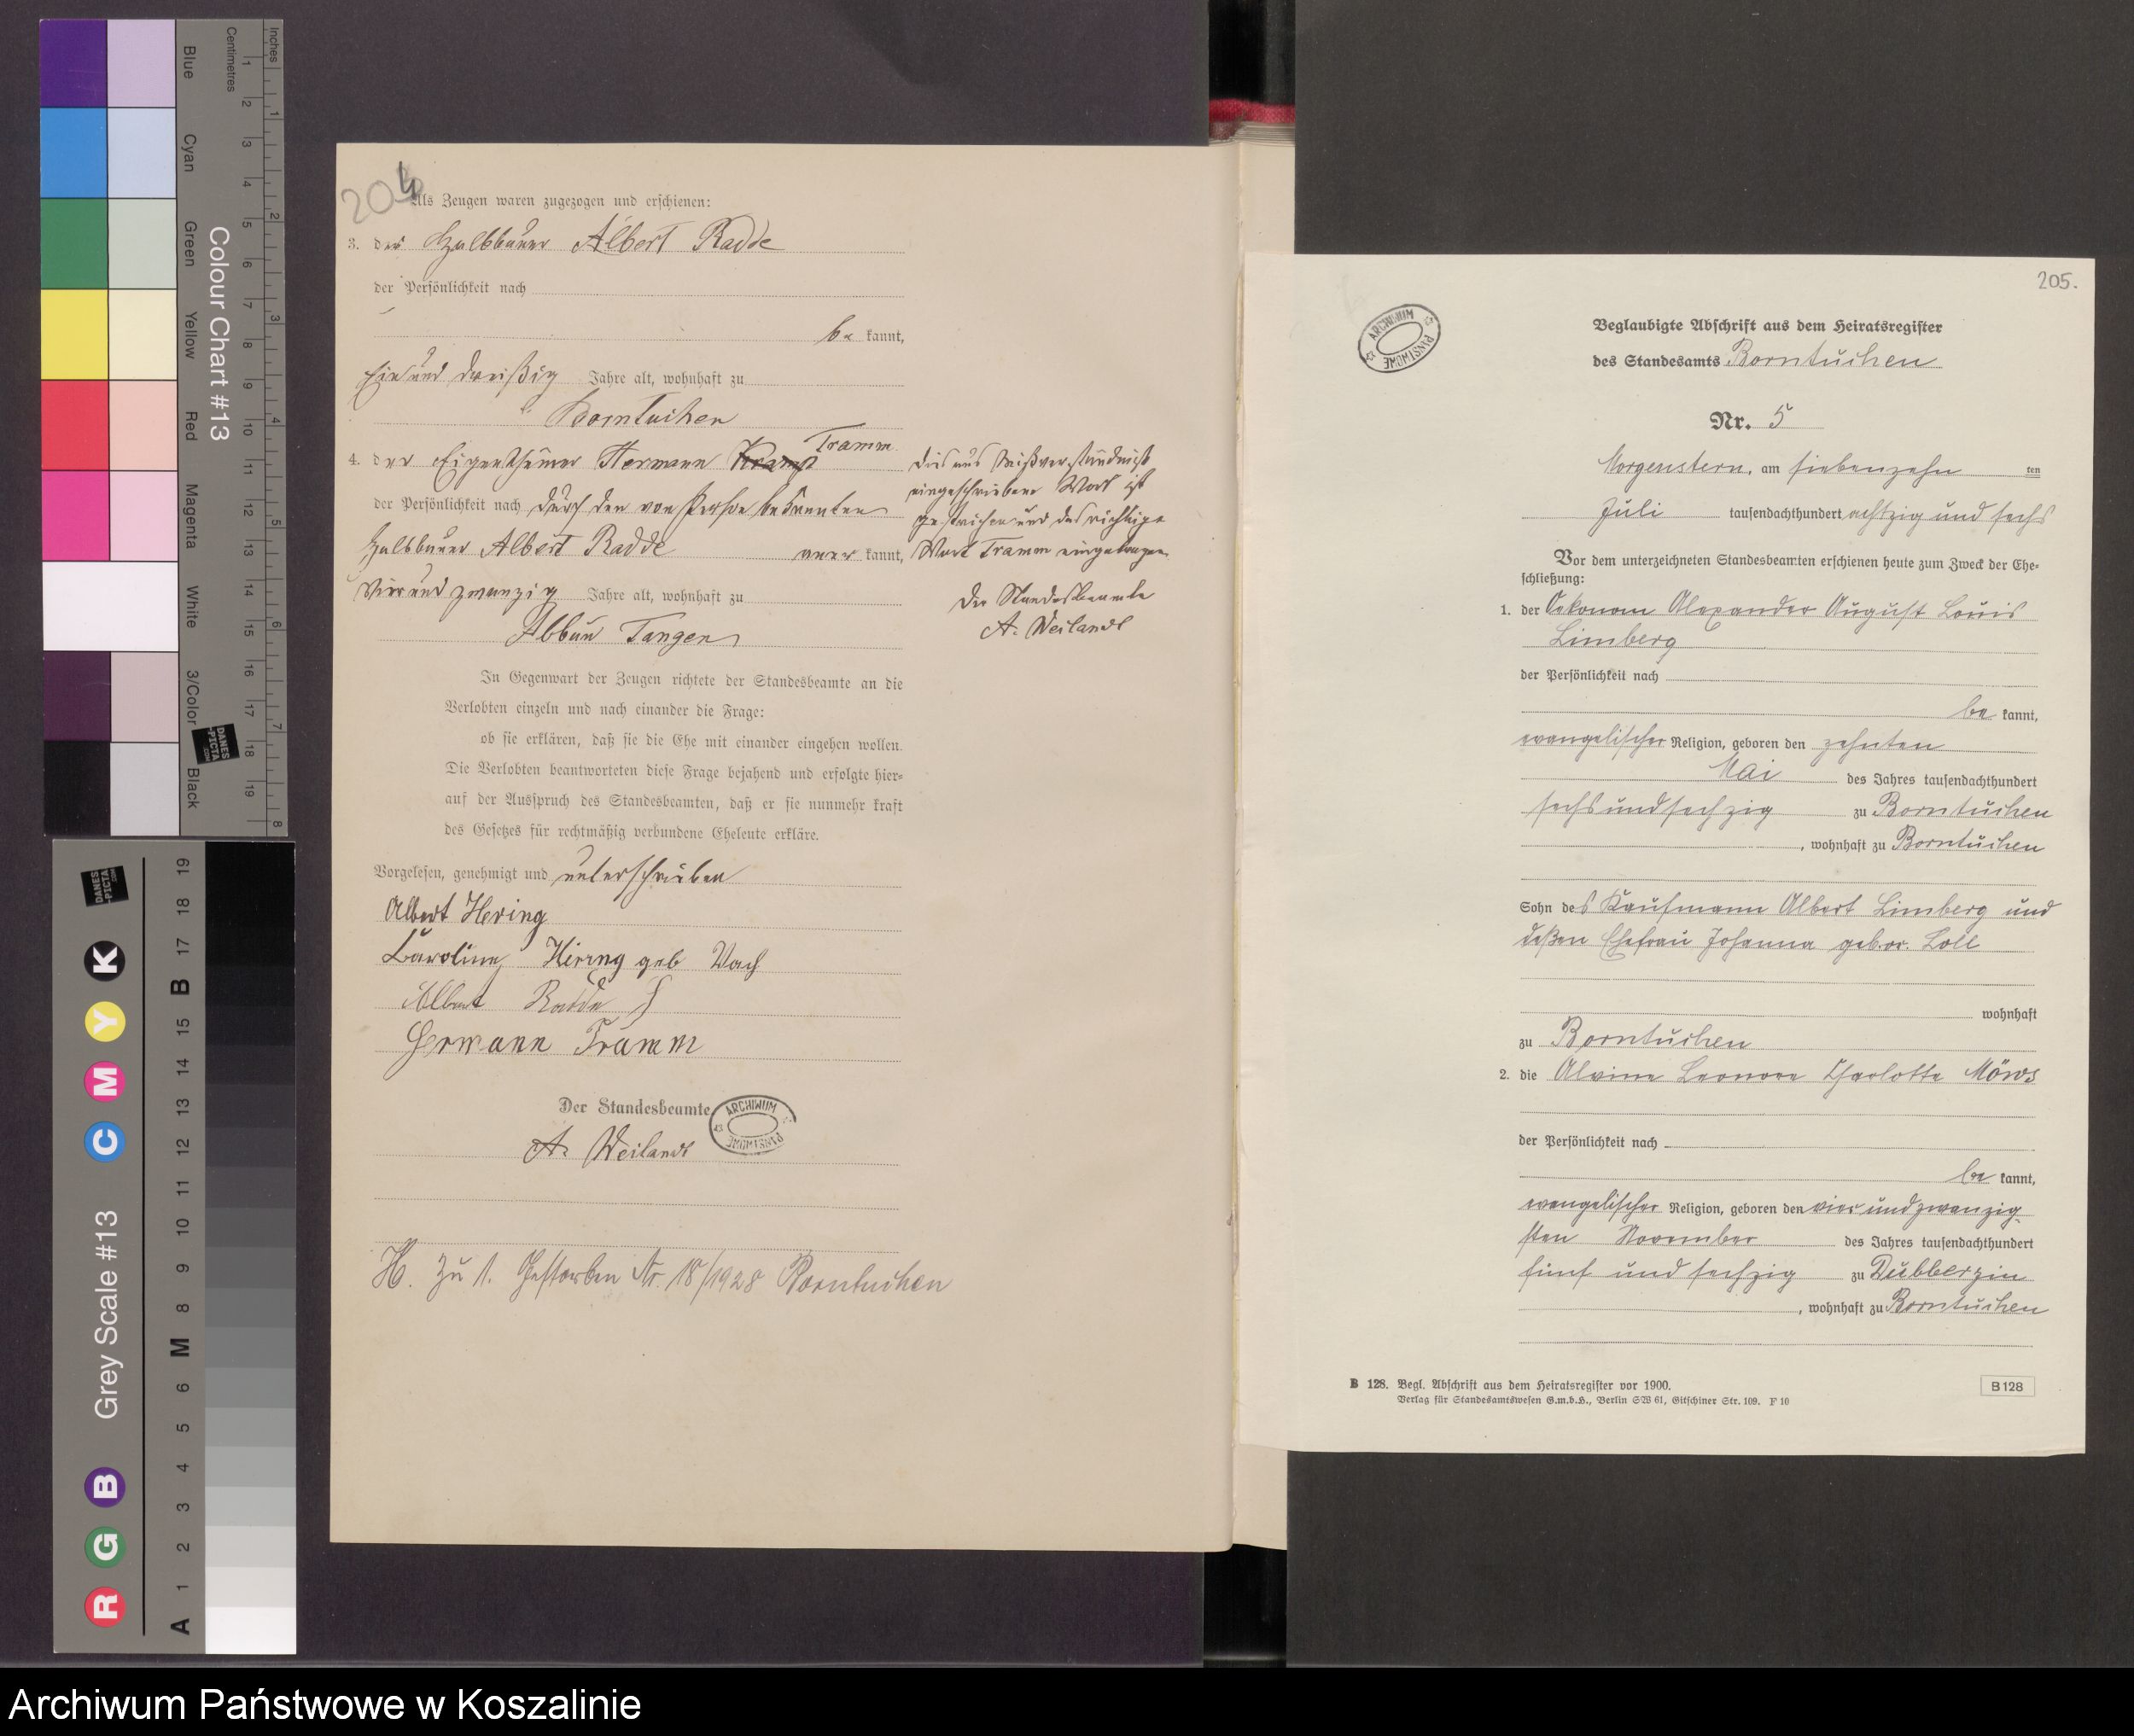 Inches
Centimetres
Colour Chart #13
Blue
Cyan
Green
Yellow
Red
Magenta
White
3/Color
Black
DANES
-PICTA
.COM
Grey Scale #13
R G B C M Y K
A 1 2 3 4 5 6 M 8 9 10 11 12 13 14 15 B 17 18 19
204
Als Zeugen waren zugezogen und erschienen:
3. der Halbbauer Albert Radde
der Persönlichkeit nach
be kannt,
ein und dreißig Jahre alt, wohnhaft zu
Borntuchen
Tramm
4. der Eigenthümer Hermann Kramp
der Persönlichkeit nach durch den von Person bekannten
Halbbauer Albert Radde aner kannt,
vier und zwanzig Jahre alt, wohnhaft zu
Abbau Tangen
Dies aus Mißverständniß
eingeschriebene Wort ist
gestrichen und das richtige
Wort Tramm eingetragen.
Der Standesbeamte
A. Weilandt
In Gegenwart der Zeugen richtete der Standesbeamte an die
Verlobten einzeln und nach einander die Frage:
ob sie erklären, daß sie die Ehe mit einander eingehen wollen.
Die Verlobten beantworteten diese Frage bejahend und erfolgte hier=
auf der Ausspruch des Standesbeamten, daß er sie nunmehr kraft
des Gesetzes für rechtmäßig verbundene Eheleute erkläre.
Vorgelesen, genehmigt und unterschrieben
Albert Hering
Karoline Hering geb Wach
Albert Radde
Hermann Tramm
Der Standesbeamte
A. Weilandt
ARCHIWUM PAŃSTWOWE
H. zu 1. Gestorben Nr. 18/1928 Borntuchen
205.
ARCHIWUM PAŃSTWOWE
Beglaubigte Abschrift aus dem Heiratsregister
des Standesamts Borntuchen
Nr. 5
Morgenstern, am siebenzehn ten
Juli tausendachthundert achtzig und sechs
Vor dem unterzeichneten Standesbeamten erschienen heute zum Zweck der Ehe=
schließung:
1. der Oekonom Alexander August Louis
Limberg
der Persönlichkeit nach
be kannt,
evangelischer Religion, geboren den zehnten
Mai des Jahres tausendachthundert
sechs und sechzig zu Borntuchen
, wohnhaft zu Borntuchen
Sohn des Kaufmann Albert Limberg und
deßen Ehefrau Johanna gebor. Loll
wohnhaft
zu Borntuchen
2. die Alwine Leonore Charlotte Möws
der Persönlichkeit nach
be kannt,
evangelischer Religion, geboren den vier und zwanzig=
sten November des Jahres tausendachthundert
fünf und sechzig zu Dubberzin
, wohnhaft zu Borntuchen
B 128. Begl. Abschrift aus dem Heiratsregister vor 1900.
Verlag für Standesamtswesen G.m.b.H., Berlin SW 61, Gitschiner Str. 109. F 10
B 128
Archiwum Państwowe w Koszalinie